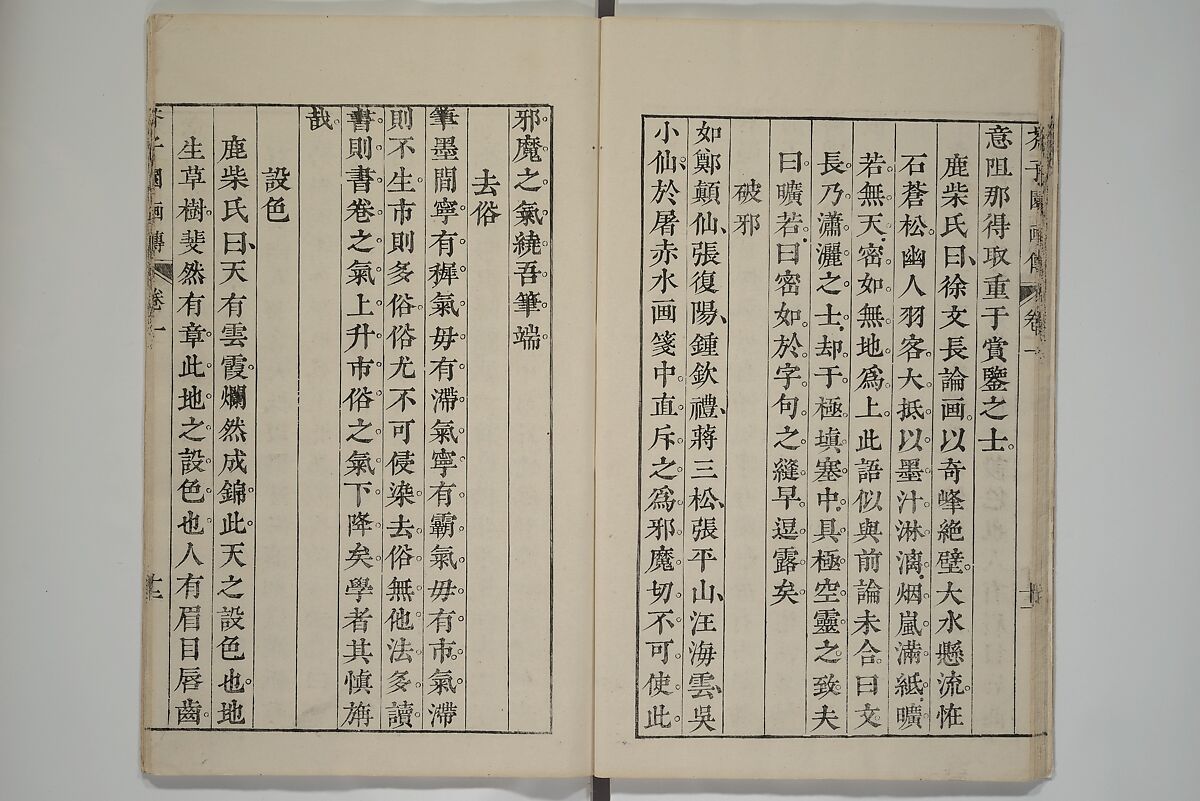 芥子園画傳 卷一
意阻那得取重于賞鑒之士。
鹿柴氏曰、徐文長論画。以奇峰絶壁。大水懸流。恠
石蒼松。幽人羽客。大抵以墨汁淋漓。烟嵐滿紙。曠
若無天。密如無地爲上。此語似與前論未合。曰文
長乃瀟灑之士。却于極填塞中。具極空靈之致。夫
曰曠若。曰密如。於字句之縫。早逗露矣。
破邪
如鄭顛仙、張復陽、鍾欽禮、蔣三松、張平山、汪海雲、吳
小仙、於屠赤水画箋中。直斥之爲邪魔。切不可使此
邪魔之氣。繞吾筆端。
去俗
筆墨間寧有穉氣。毋有滯氣。寧有霸氣。毋有市氣。滯
則不生。市則多俗。俗尤不可侵染。去俗無他法。多讀
書。則書卷之氣上升。市俗之氣下降矣。學者其慎旃
哉。
設色
鹿柴氏曰、天有雲霞。爛然成錦。此天之設色也。地
生草樹。斐然有章。此地之設色也。人有眉目唇齒。
芥子園画傳 卷一 十二